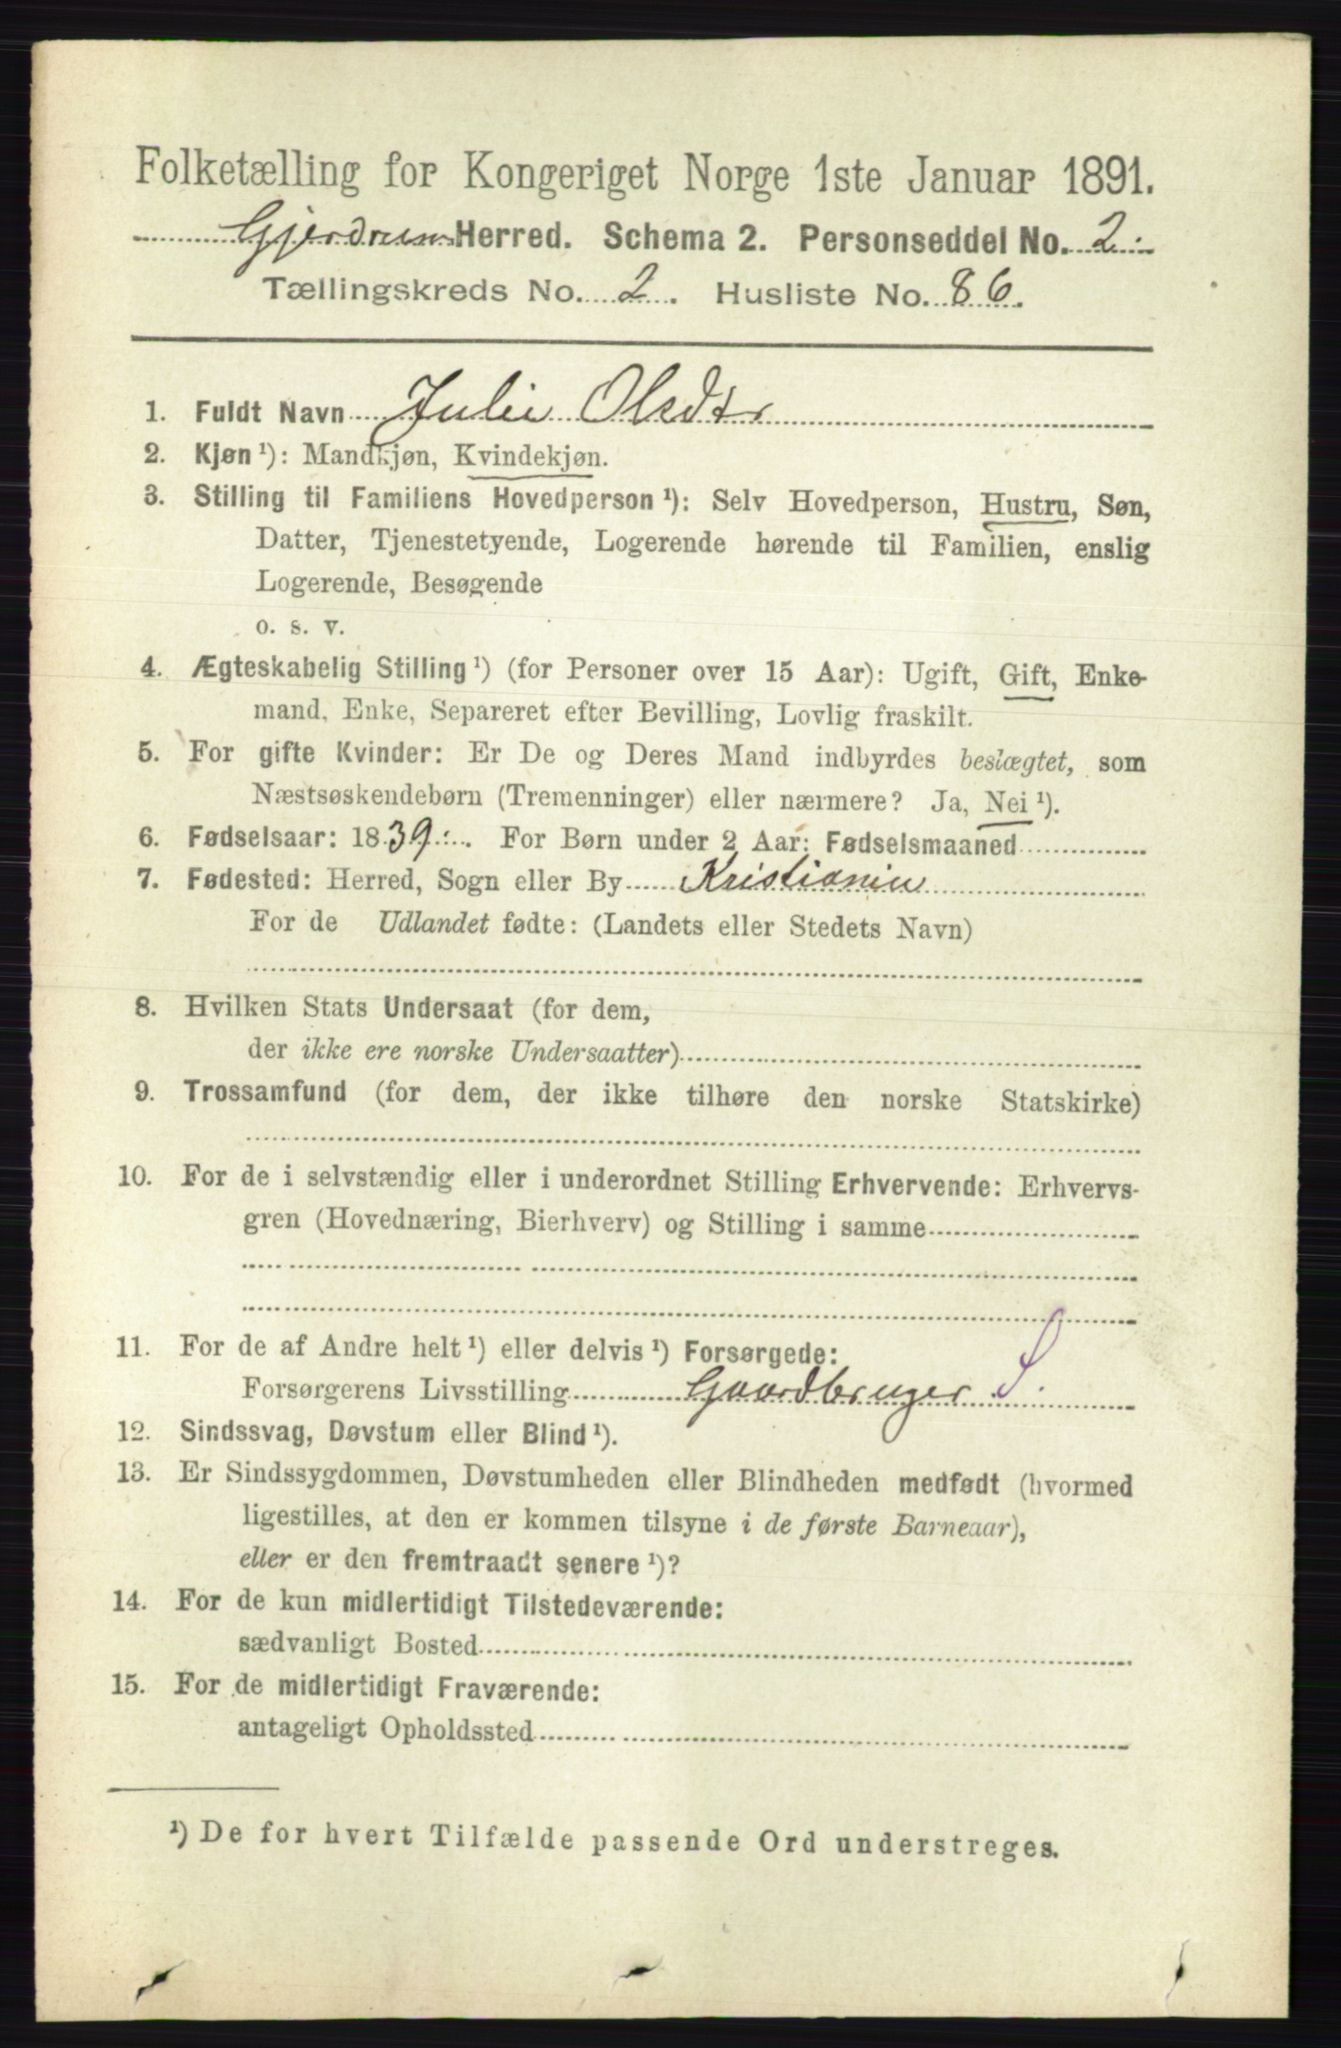 Folketælling for Kongeriget Norge 1ste Januar 1891.
Gjerdrum Herred. Schema 2. Personseddel No. 2.
Tællingskreds No. 2. Husliste No. 86.
1. Fuldt Navn Julie Olsdtr
2. Kjøn ¹): Mandkjøn, Kvindekjøn.
3. Stilling til Familiens Hovedperson ¹): Selv Hovedperson, Hustru, Søn,
Datter, Tjenestetyende, Logerende hørende til Familien, enslig
Logerende, Besøgende
o. s. v.
4. Ægteskabelig Stilling ¹) (for Personer over 15 Aar): Ugift, Gift, Enke-
mand, Enke, Separeret efter Bevilling, Lovlig fraskilt.
5. For gifte Kvinder: Er De og Deres Mand indbyrdes beslægtet, som
Næstsøskendebørn (Tremenninger) eller nærmere? Ja, Nei ¹).
6. Fødselsaar: 1839. For Børn under 2 Aar: Fødselsmaaned
7. Fødested: Herred, Sogn eller By Kristiania
For de Udlandet fødte: (Landets eller Stedets Navn)
8. Hvilken Stats Undersaat (for dem,
der ikke ere norske Undersaatter)
9. Trossamfund (for dem, der ikke tilhøre den norske Statskirke)
10. For de i selvstændig eller i underordnet Stilling Erhvervende: Erhvervs-
gren (Hovednæring, Bierhverv) og Stilling i samme
11. For de af Andre helt ¹) eller delvis ¹) Forsørgede:
Forsørgerens Livsstilling Gaardbruger S.
12. Sindssvag, Døvstum eller Blind ¹).
13. Er Sindssygdommen, Døvstumheden eller Blindheden medfødt (hvormed
ligestilles, at den er kommen tilsyne i de første Barneaar),
eller er den fremtraadt senere ¹)?
14. For de kun midlertidigt Tilstedeværende:
sædvanligt Bosted
15. For de midlertidigt Fraværende:
antageligt Opholdssted
¹) De for hvert Tilfælde passende Ord understreges.